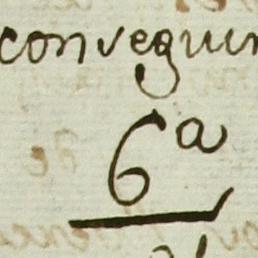 conseguir
6ª